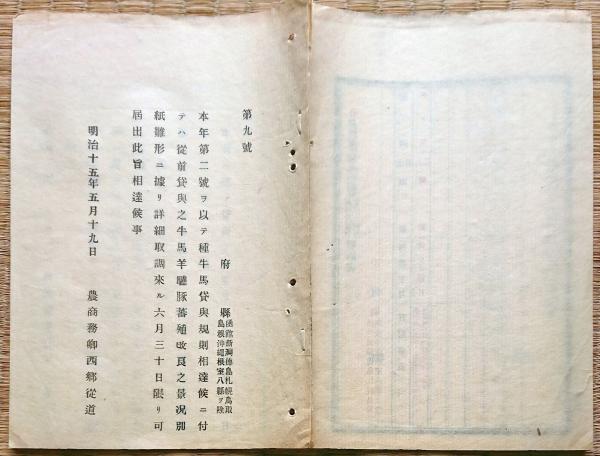 第九號
府縣 函館新潟德島札幌鳥取
島根沖繩根室八縣ヲ除
本年第二號ヲ以テ種牛馬貸與規則相達候ニ付
テハ從前貸與之牛馬羊驢豚蕃殖改良之景况別
紙雛形ニ據リ詳細取調來ル六月三十日限リ可
届出此旨相達候事
明治十五年五月十九日 農商務卿西鄕從道